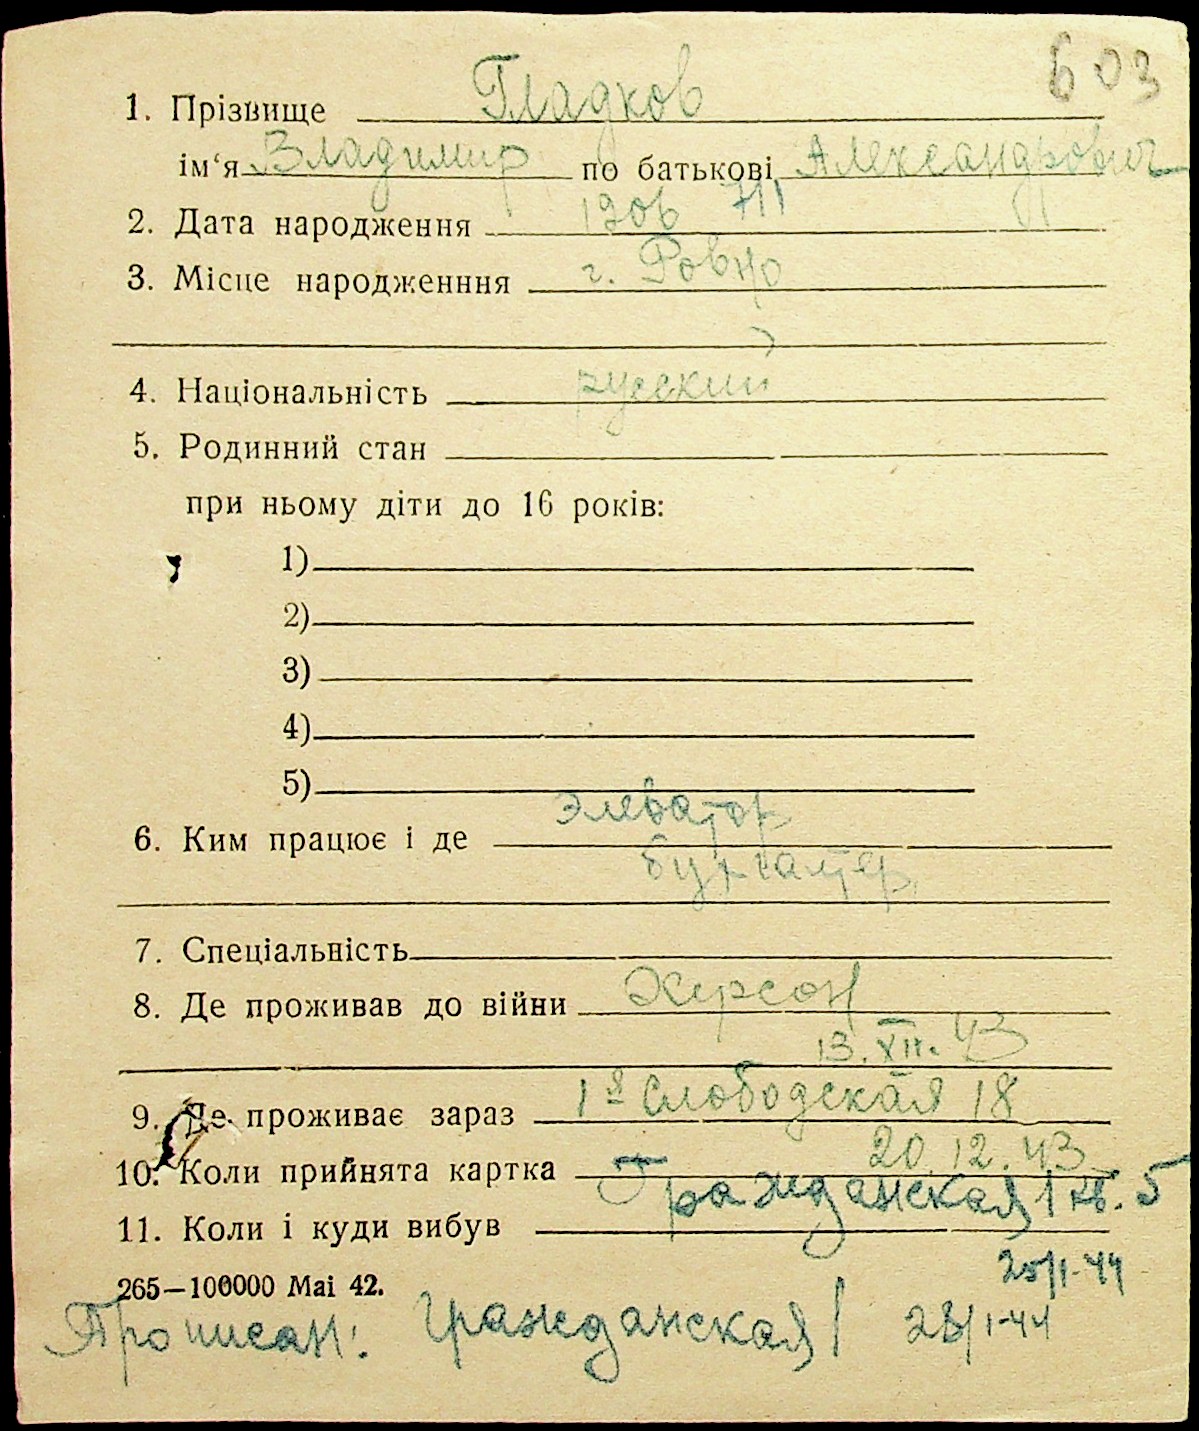 603
1. Прізвище Гладков
ім‘я Владимир по батькові Александрович
2. Дата народження 1906 7/II
3. Місце народженння г. Ровно
4. Національність русский
5. Родинний стан
при ньому діти до 16 років:
1)
2)
3)
4)
5)
элеватор
6. Ким працює і де
бухгалтер
7. Спеціальність
8. Де проживав до війни Херсон
13.XII.43
9. Де проживає зараз 1я Слободская 18
20.12.43
10. Коли прийнята картка
Гражданская 1 кв. 5
11. Коли і куди вибув
25/I-44
265—100000 Mai 42.
Прописан: Гражданская 1 28/I-44